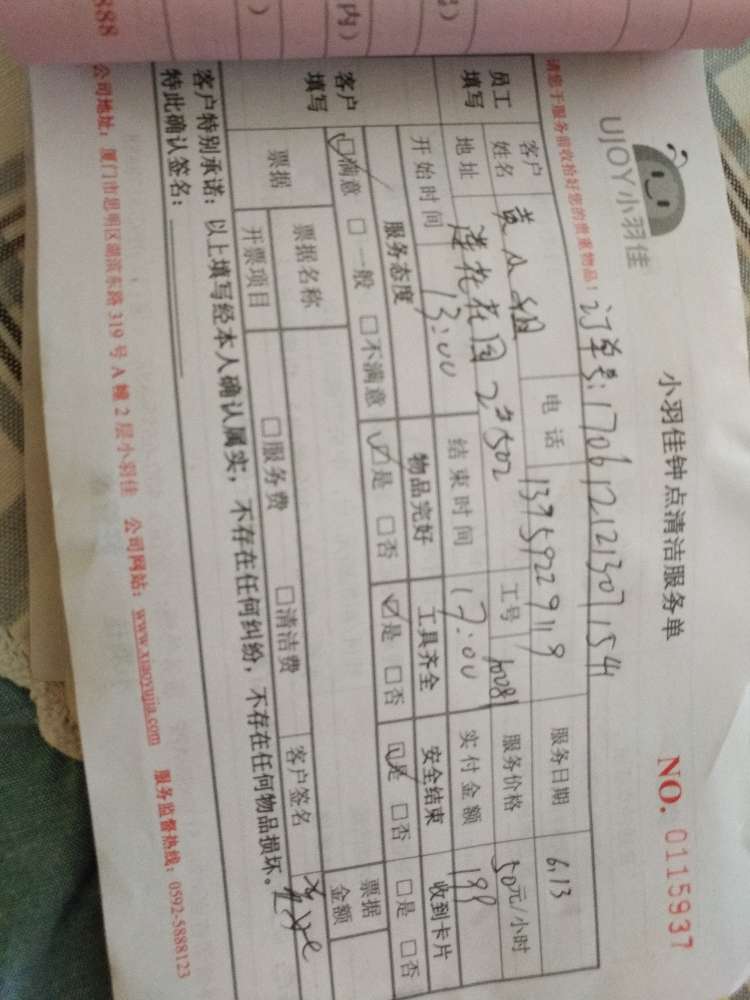 888
内)
UJOY小羽佳
小羽佳钟点清洁服务单
NO. 0115937
请您于服务前收拾好您的贵重物品!
订单号:170612121307154
员工填写
客户姓名
电话 13959229119
服务日期 6.13
地址 莲花花园 23502
工号 10081
服务价格 50元/小时
开始时间 13:00
结束时间 17:00
实付金额 199
客户填写
服务态度 物品完好 工具齐全 安全结束 收到卡片
☑满意 □一般 □不满意 ☑是 □否 ☑是 □否 ☑是 □否 □是 □否
票据
票据名称
票据金额
开票项目 □服务费 □清洁费
客户签名
客户特别承诺:以上填写经本人确认属实,不存在任何纠纷,不存在任何物品损坏。
特此确认签名:
公司地址:厦门市思明区湖滨东路 319 号 A 幢 2 层小羽佳 公司网站:www.xiaoyujia.com 服务监督热线:0592-5888123